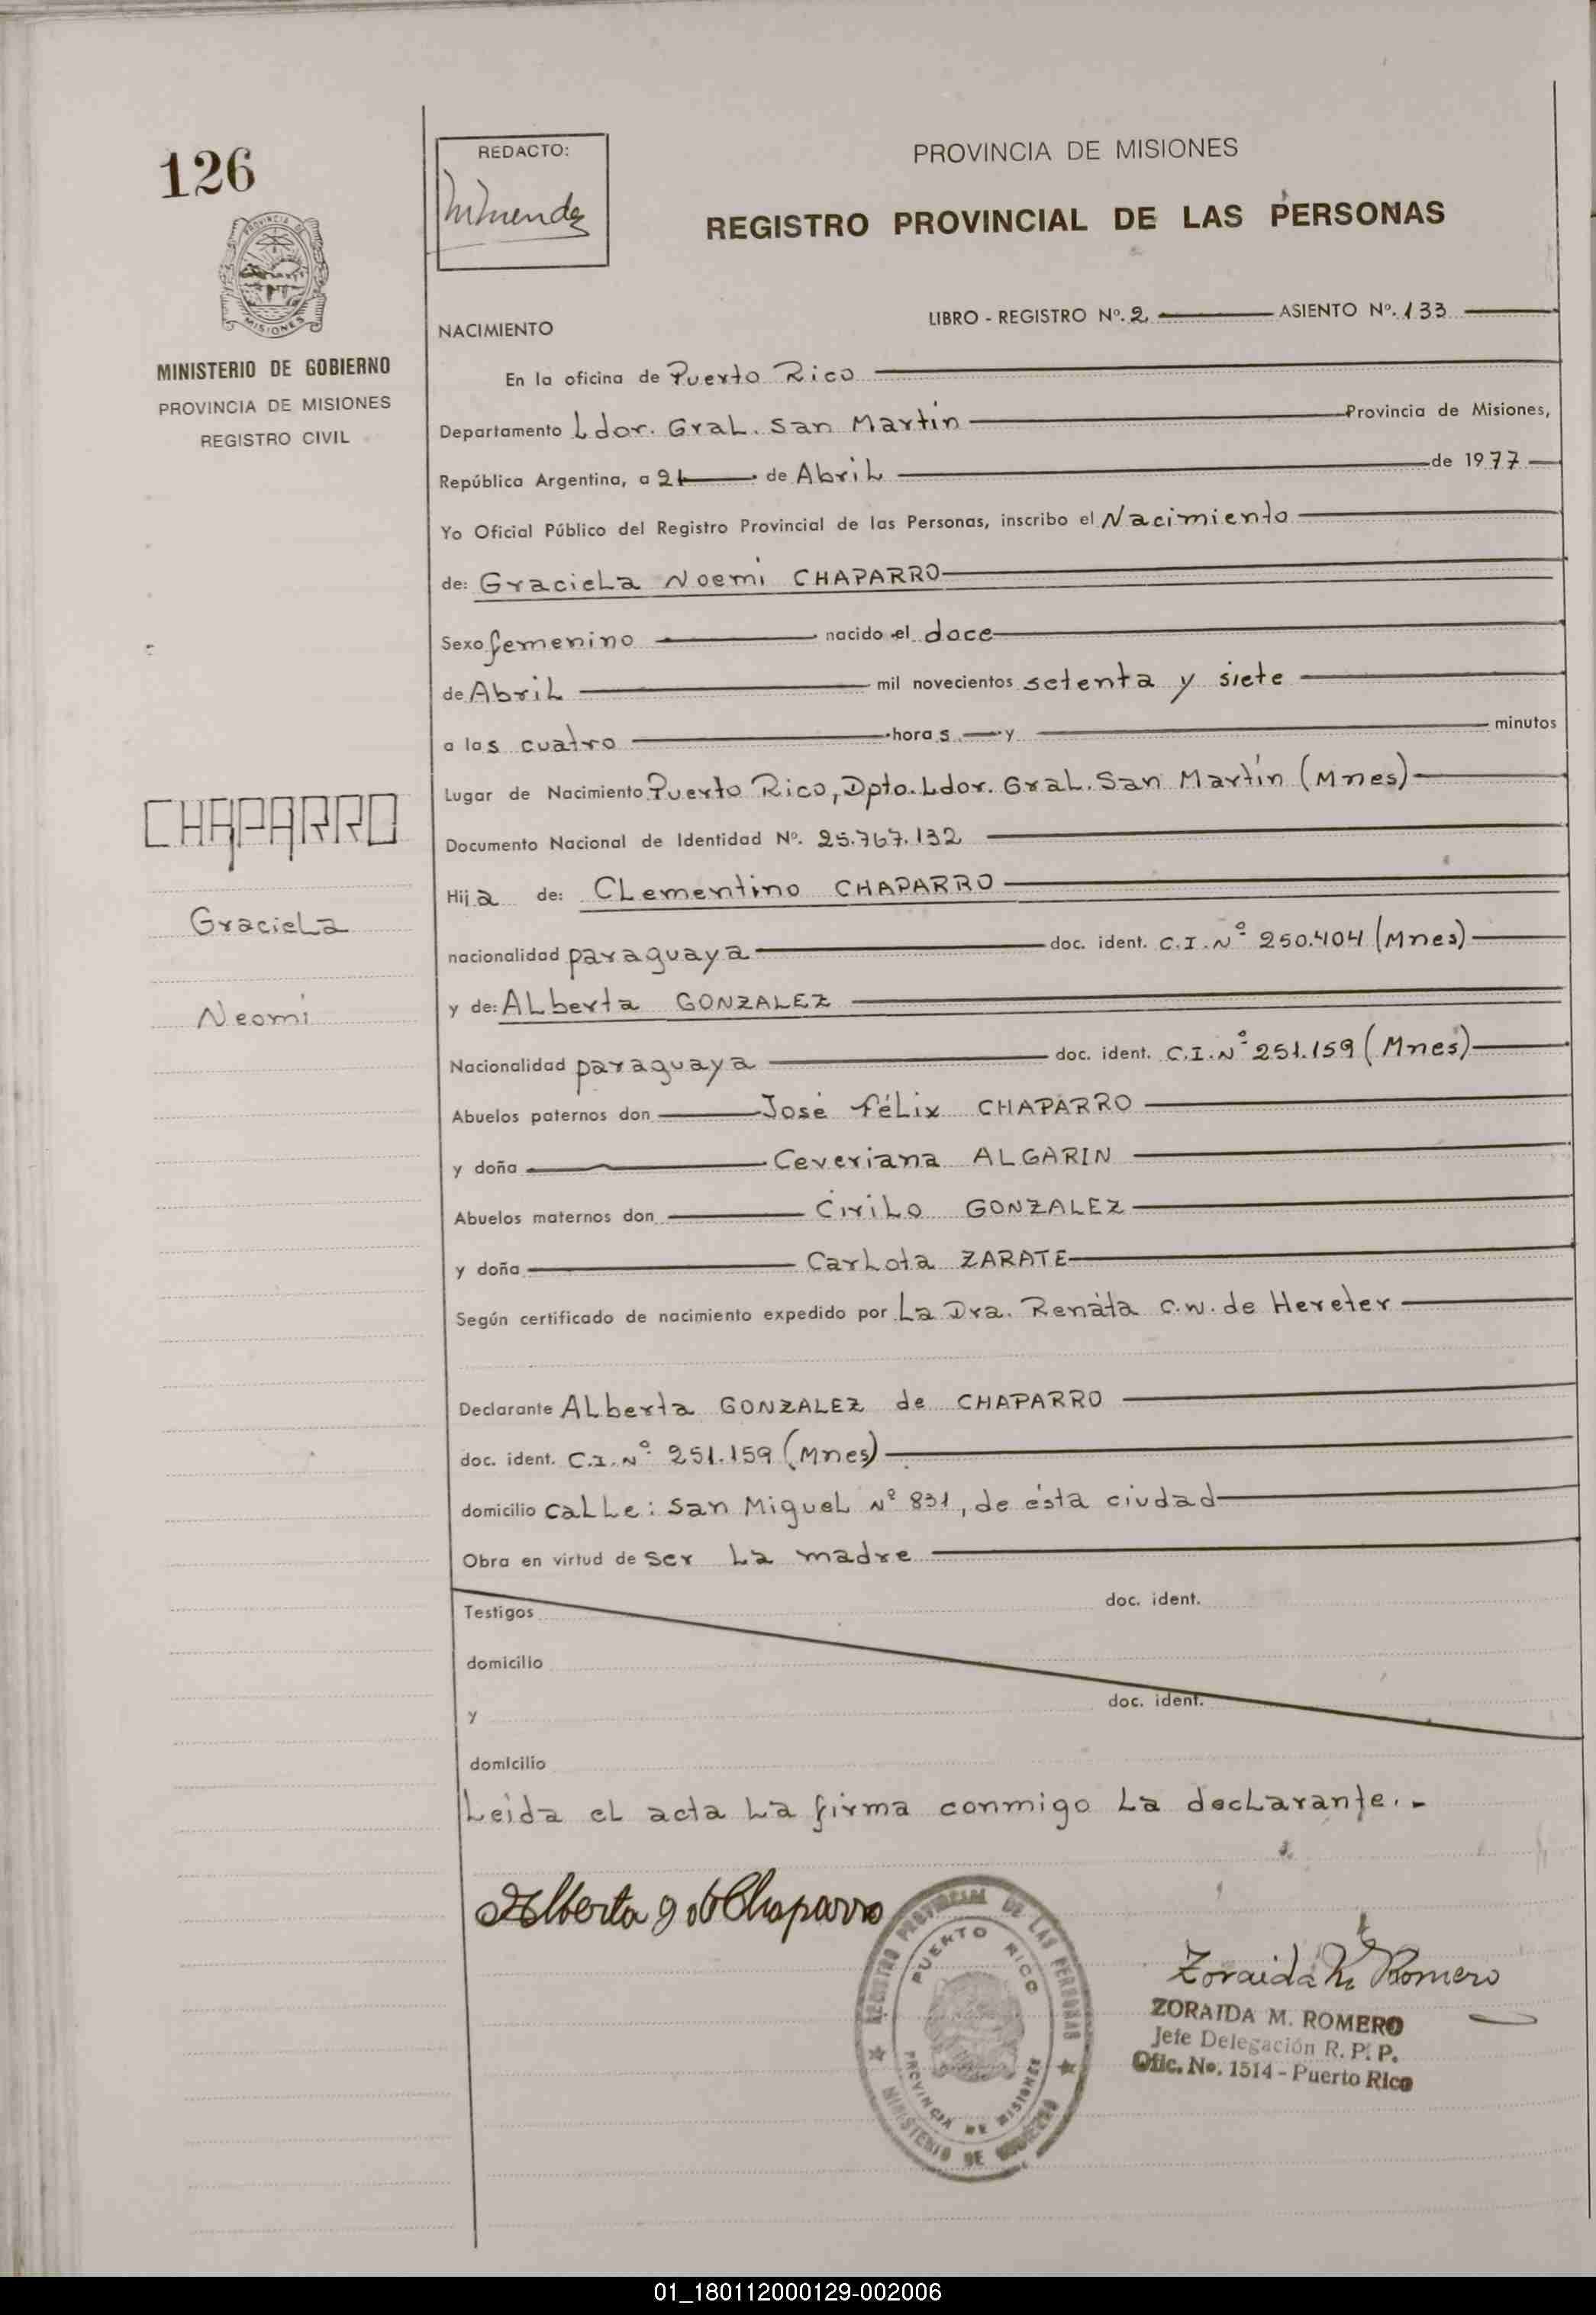 126
REDACTO:
PROVINCIA DE MISIONES
REGISTRO PROVINCIAL DE LAS PERSONAS
MISIONES
MINISTERIO DE GOBIERNO
PROVINCIA DE MISIONES
REGISTRO CIVIL
NACIMIENTO
LIBRO - REGISTRO Nº. 2 ASIENTO Nº. 133
En la oficina de Puerto Rico
Departamento Ldor. Gral. San Martín Provincia de Misiones,
República Argentina, a 21 de Abril de 1977
Yo Oficial Público del Registro Provincial de las Personas, inscribo el Nacimiento
de: Graciela Noemi CHAPARRO
Sexo femenino nacido el doce
de Abril mil novecientos setenta y siete
a las cuatro horas y minutos
Lugar de Nacimiento Puerto Rico, Dpto. Ldor. Gral. San Martín (Mnes)
Documento Nacional de Identidad Nº. 25.767.132
Hija de: Clementino CHAPARRO
nacionalidad paraguaya doc. ident. C.I.Nº 250.404 (Mnes)
y de: Alberta GONZALEZ
Nacionalidad paraguaya doc. ident. C.I.Nº 251.159 (Mnes)
Abuelos paternos don José Félix CHAPARRO
y doña Ceveriana ALGARIN
Abuelos maternos don Cirilo GONZALEZ
y doña Carlota ZARATE
Según certificado de nacimiento expedido por La Dra. Renáta C.W. de Hereter
Declarante Alberta GONZALEZ de CHAPARRO
doc. ident. C.I.Nº 251.159 (Mnes)
domicilio calle: San Miguel Nº 831, de ésta ciudad
Obra en virtud de ser la madre
Testigos doc. ident.
domicilio
y doc. ident.
domicilio
Leída el acta la firma conmigo la declarante.-
CHAPARRO
Graciela
Neomi
Alberta g de Chaparro
REGISTRO PROVINCIAL DE LAS PERSONAS
PUERTO RICO
PROVINCIA DE MISIONES
MINISTERIO DE GOBIERNO
Zoraida M. Romero
ZORAIDA M. ROMERO
Jefe Delegación R. P. P.
Ofic. No. 1514 - Puerto Rico
01_180112000129-002006